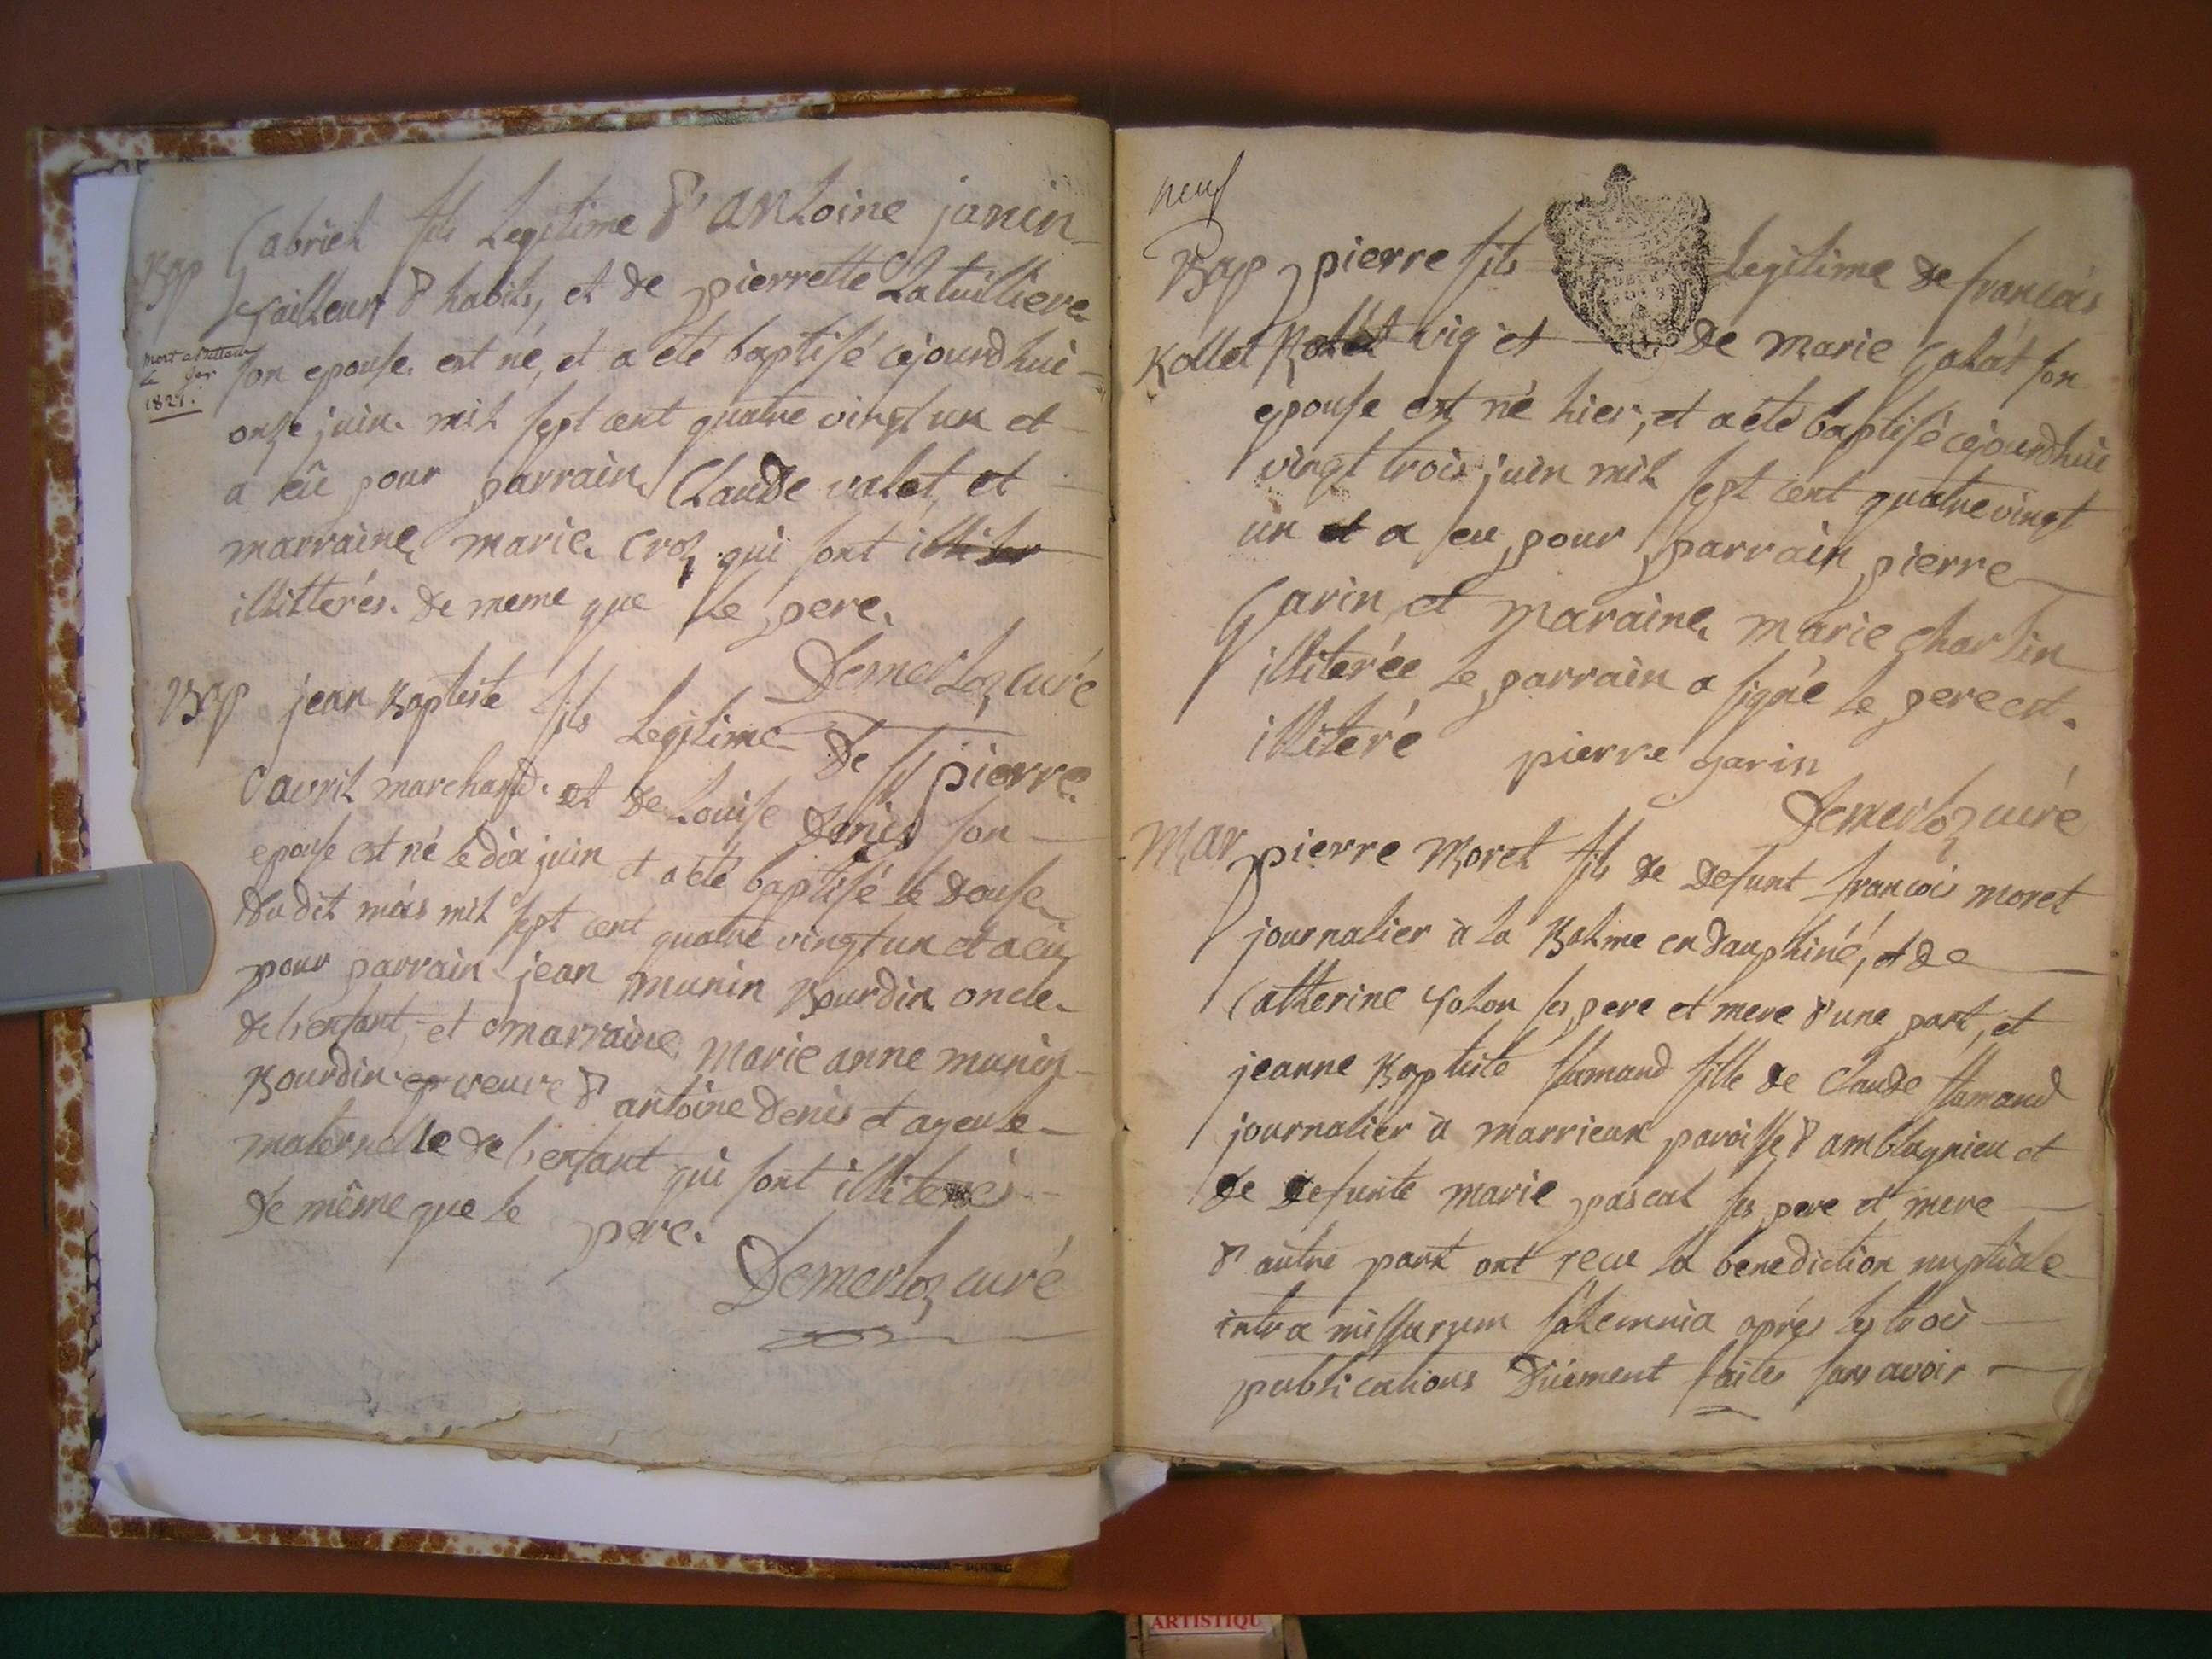 Bap Gabriel fils legitime d'antoine janin
tailleur d'habits, et de pierrette Latuilliere
mort a
le
1821.
son epouse est né, et a eté baptisé cejourdhui
onze juin mil sept cent quatre vingt un et
a eû pour parrain Claude valet, et
marraine marie croz qui sont
illitterés de meme que le pere.
Demerloz curé
Bap jean Baptiste fils legitime de sr pierre
avril marchand et de Louise denis son
epouse est né le dix juin et a eté baptisé le douse
du dit mois mil sept cent quatre vingt un et a eu
pour parrain jean munin Bourdin oncle
de l'enfant, et marraine marie anne munin
Bourdin veuve d'antoine denis et ayeule
maternelle de l'enfant qui sont illiterés
de même que le pere.
Demerloz curé
neuf
Bap pierre fils legitime de francois
Rollet Rollet vig et de marie Galat son
epouse est né hier, et a eté baptisé cejourdhui
vingt trois juin mil sept cent quatre vingt
un et a eu pour parrain pierre
Garin et maraine marie Charlin
illiterée le parrain a signé le pere est
illiteré pierre garin
Demerloz curé
Mar pierre Moret fils de defunt francois moret
journalier à la Balme en dauphiné, et de
Catterine Golon ses pere et mere d'une part, et
jeanne Baptiste flamand fille de Claude flamand
journalier à marrieux paroisse d'amblagnieu et
de defunte marie pascal ses pere et mere
d'autre part ont recu la benediction nuptiale
intra missarum solemnia aprés les trois
publications duement faites sans avoir
ARTISTIQU